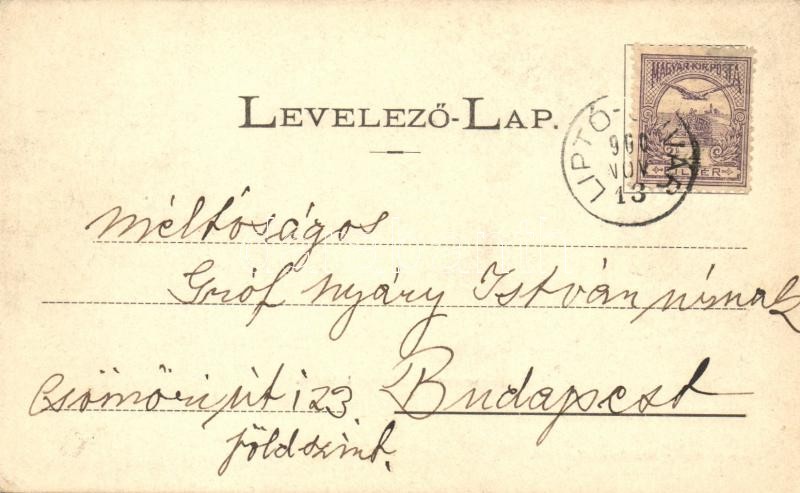 LEVELEZŐ-LAP.
MAGYAR KIR. POSTA
FILLÉR
LIPTÓ- VÁR
900
NOV
13
Méltóságos
Gróf Nyáry István úrnak
Csömöri út 123 Budapest
földszint.